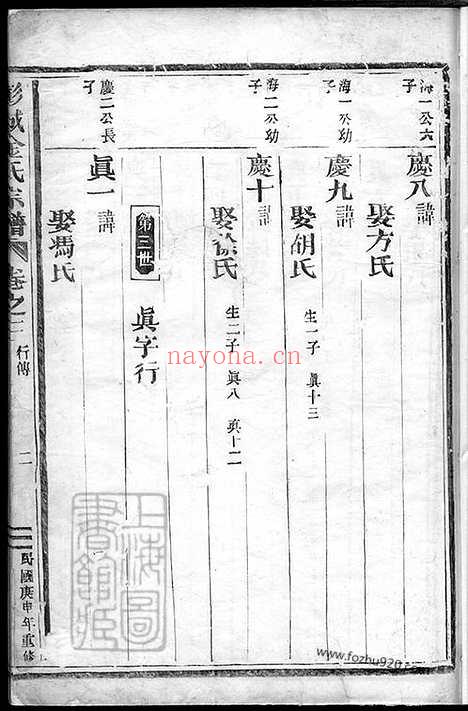 海一公六子
慶八諱
娶方氏
海一公幼子
慶九諱
娶胡氏
生一子 眞十三
海二公幼子
慶十諱
娶徐氏
生二子 眞八 眞十二
第三世
眞字行
慶二公長子
眞一諱
娶馮氏
彭城金氏宗譜
卷之
行傳
二
民國庚申年重修
上海圖書館藏
nayona.cn
www.fozhu920.com